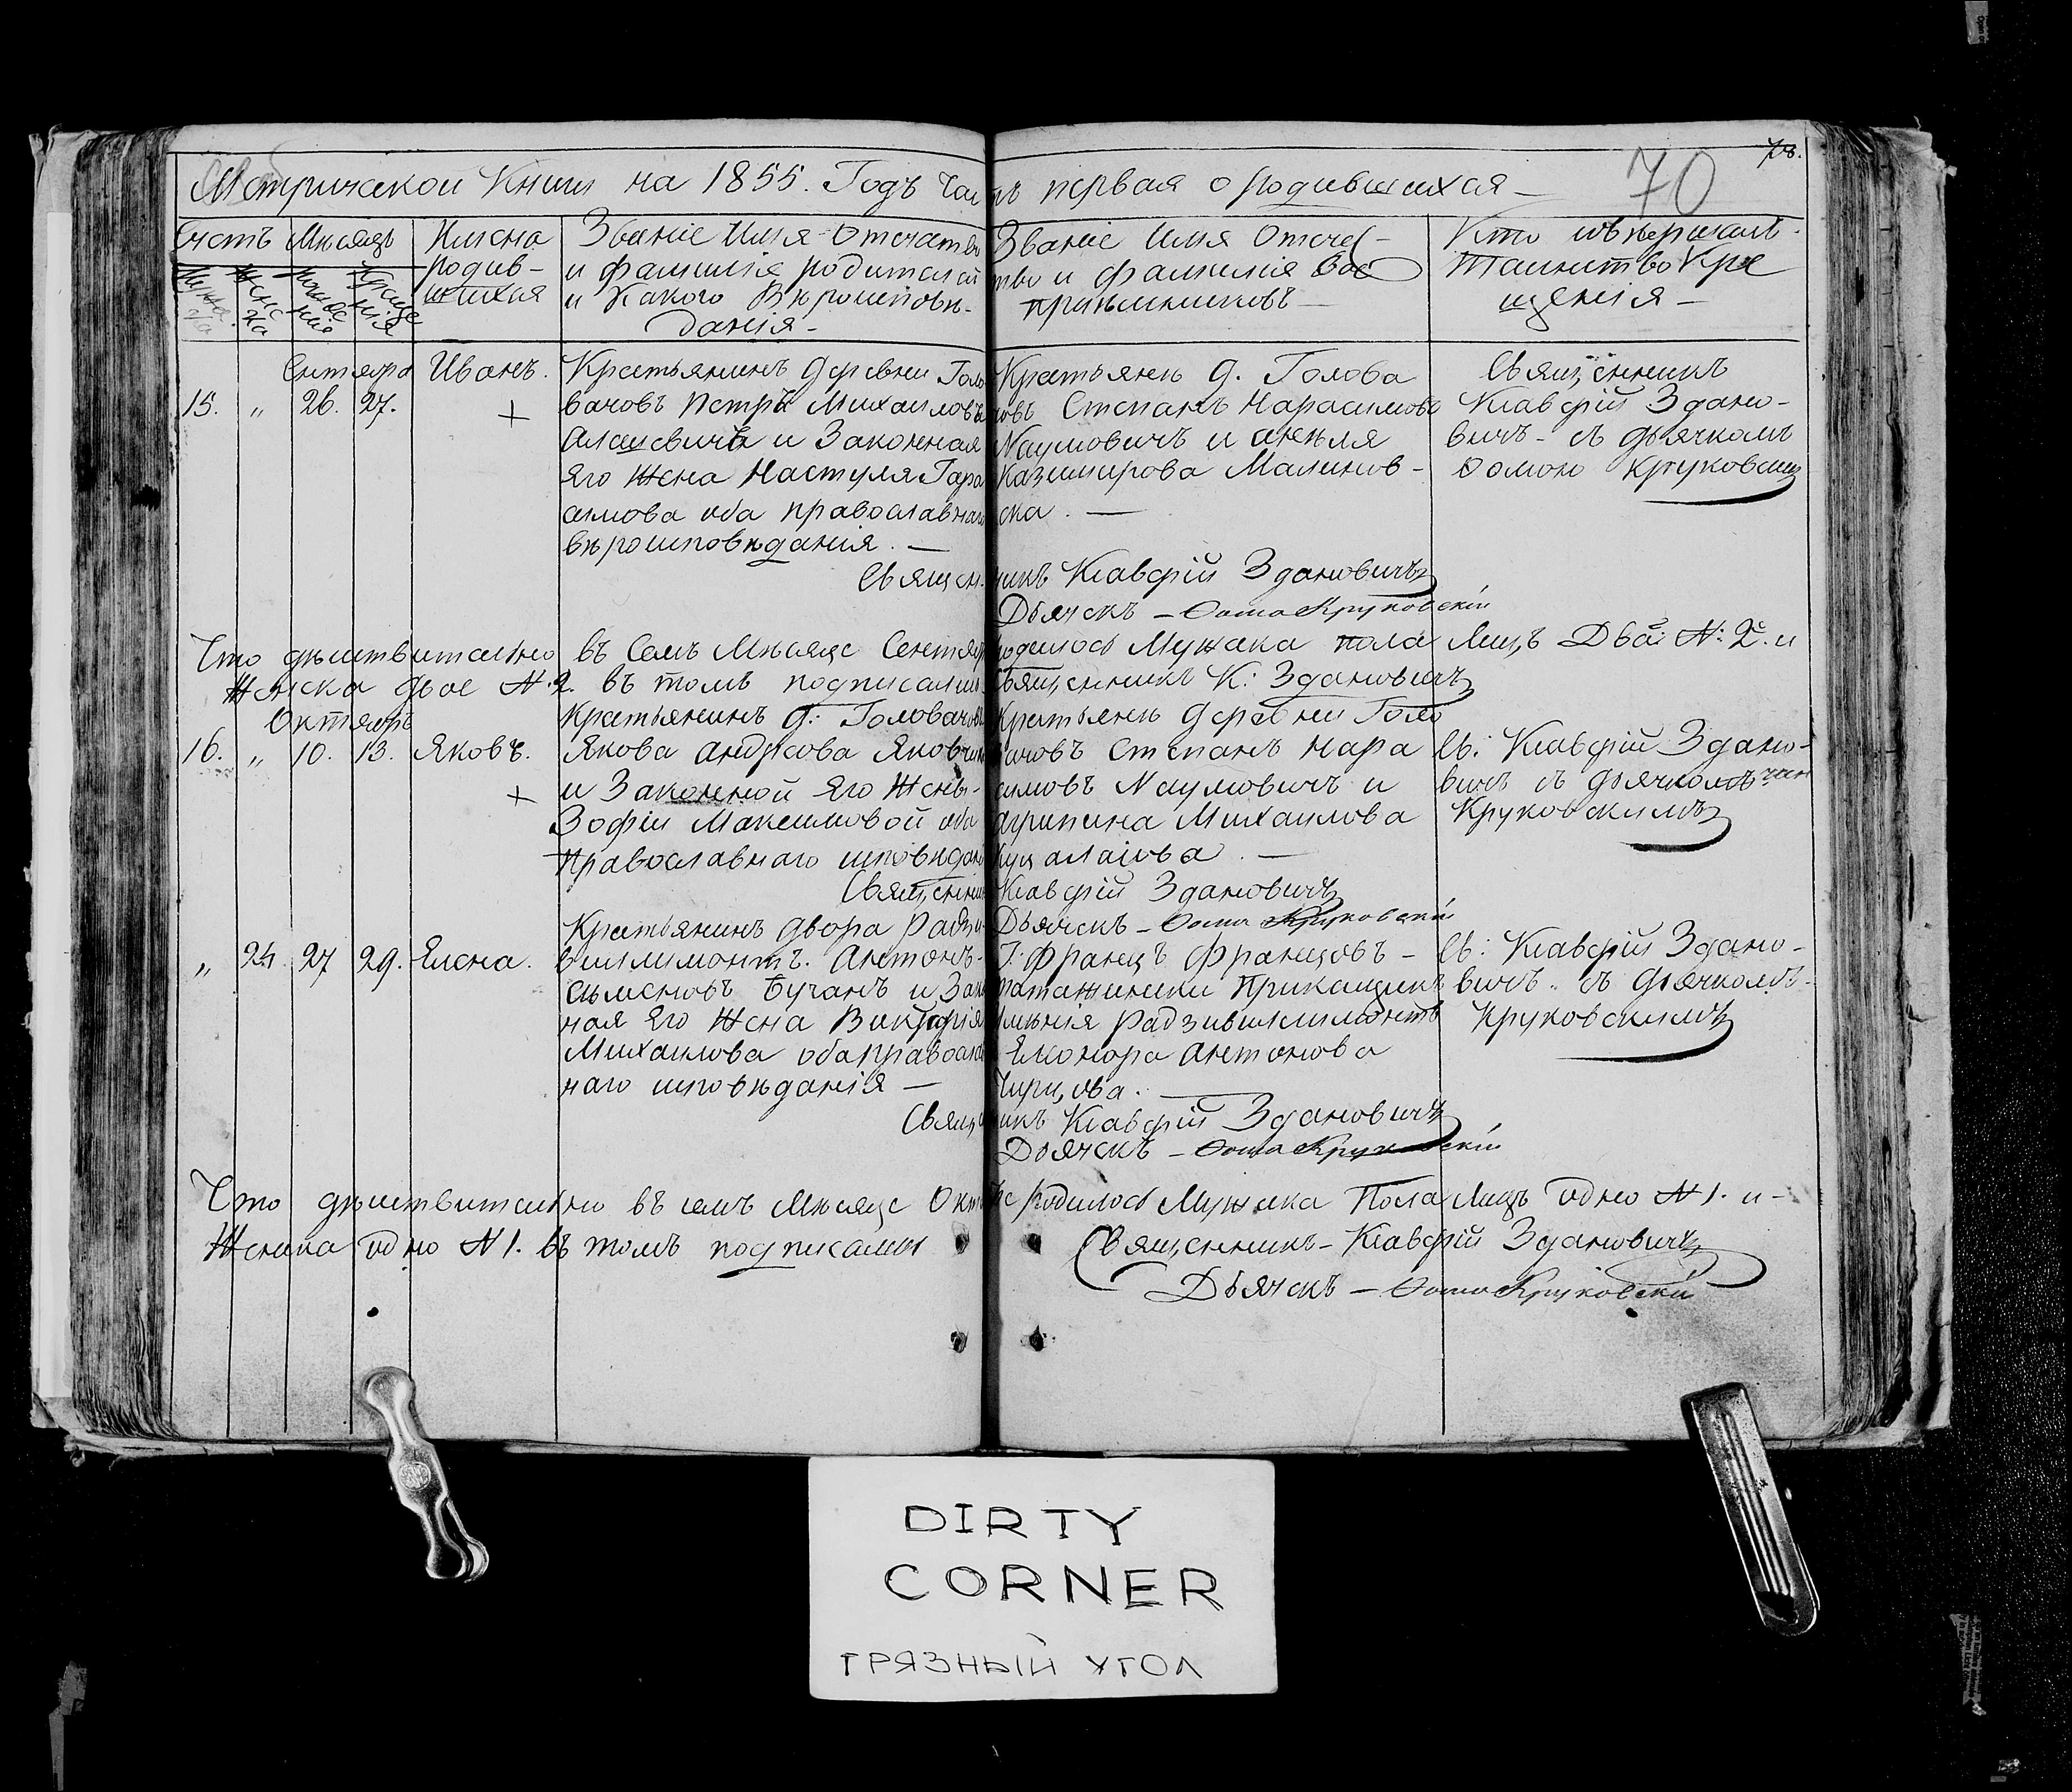 70
78.
Метрической Книги на 1855. Годъ часть первая о родившихся
Счетъ
Мѣсяцъ
Имена
родив-
шихся
Званіе Имя Отчатво
и фамилія родителей
и Какого Вѣроисповѣ-
данія-
Званіе Имя Отчес-
тво и фамилія вос
пріѣмниковъ
Кто совершалъ
Таинство Кре
щенія
Сентября
15. " 26. 27.
Иванъ.
Крестьянинъ деревни Голо
вачовъ Петръ Михаиловъ
и Законная
Его Жена Настуля Гара
симова оба православнаго
вѣроисповѣданія.
Крестьяне д. Голова
човъ Степанъ Нарасимовъ
Наумовичъ и анѣля
Казимирова Малинов-
ска.
Священникъ
Клавдій Здано-
вичъ съ дьячкомъ
Ѳомою Круковски
Священникъ Клавдій Здановичъ
Дьячекъ - Ѳома Круковскій
Что дѣйствительно въ Семъ Мѣсяце Сентября родилось Мужска пола Лицъ Два: N: 2. и
Женска двое N. 2. въ томъ подписался Священникъ К: Здановичъ
Октябръ
16. " 10. 13.
Яковъ.
Крестьянинъ д: Головачовъ
Якова андреова
и Законной Его Жены
Зофіи Максимовой оба
православнаго исповѣдан
Крестьяне деревни Голо
вачовъ Степанъ Нара
симовъ Наумовичъ и
агрипина Михаилова
Св: Клавдій Здано-
вичъ съ дьячкомъ
Круковскимъ
Священникъ Клавдій Здановичъ
Дьячекъ - Ѳома Круковскій
" 24. 27 29.
Елена.
Крестьянинъ двора Радзи
виллимонтъ. Антонъ
Сѣменовъ Бучанъ и Закон
ная Его Жена Викторія
Михаилова оба православ
наго исповѣданія
Г: францъ францовъ
Прикащикъ
Имѣнія Радзивиллимонтъ
Елконора антонова
Св: Клавдій Здано-
вичъ съ дьячкомъ
Круковскимъ
Священникъ Клавдій Здановичъ
Дьячекъ - Ѳома Круковскій
Что дѣйствительно въ семъ Мѣсяце Октябре родилось Мужска Пола Лицъ одно N 1. и
Женска одно N 1. въ томъ подписались
Священникъ - Клавдій Здановичъ
Дьячекъ - Ѳома Круковскій
DIRTY
CORNER
ГРЯЗНЫЙ УГОЛ